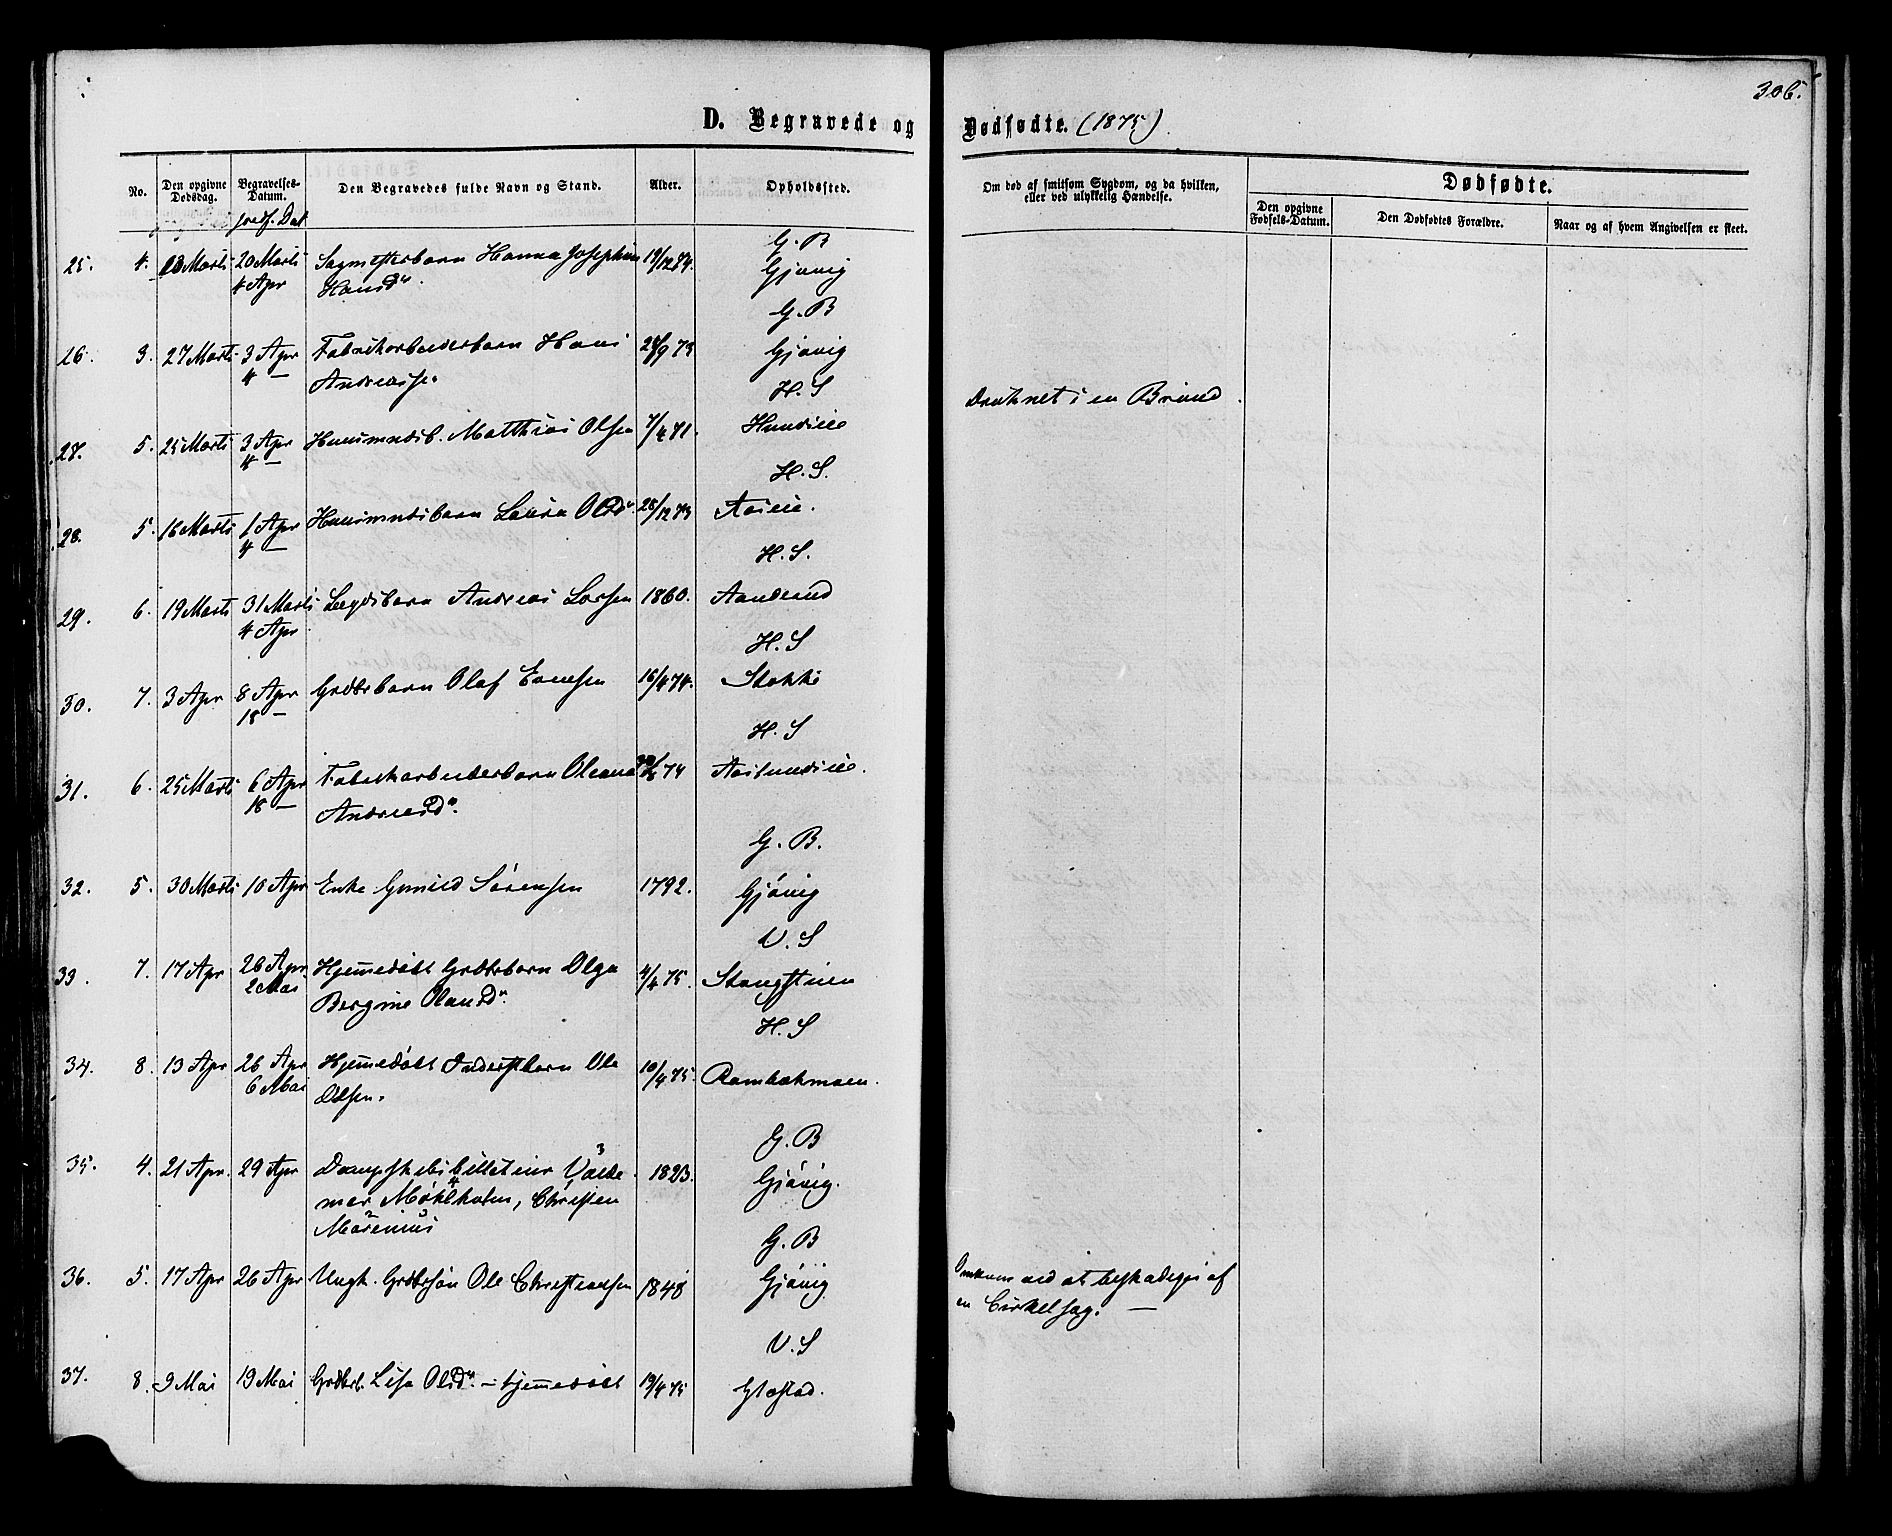 306.
D. Begravede og Dødfødte. (1875)
No.
Den opgivne Dødsdag.
Begravelses-Datum.
Den Begravedes fulde Navn og Stand.
Alder.
Opholdssted.
Om død af smitsom Sygdom, og da hvilken, eller ved ulykkelig Hændelse.
Dødfødte.
Den opgivne Fødsels-Datum.
Den Dødfødtes Forældre.
Naar og af hvem Angivelsen er skeet.
Jordf. Dat
G. B
25. 4. Marts 20 Marts Sagmesterbarn Hanna Josephine 19/12 74. Gjøvig
4 Apr Hansdr.
G. B
26. 3. 27 Marts 3 Apr Fabrikarbeiderbarn Hans 9 73 Gjøvig
4 — Andreasse.
H. S
Druknet i en Brønd.
27. 5. 25 Marts 3 Apr Huusmndsb. Matthias Olsen 7/4 71. Hundseie
4 —
H. S.
28. 5. 16 Marts 1 Apr Huusmndsbarn Laura Olsdr. 28/12 73 Aaseie.
4 —
H. S.
29. 6. 19 Marts 31 Marts Lægdsbarn Andreas Larsen 1860.
4 Apr
H. S
30. 7. 3 Apr 8 Apr Grdbrbarn Olaf Evensen 16/4 74. Stokke
18 —
H. S
31. 6. 25 Marts 6 Apr Fabrikarbeiderbarn Oleana 74
18 — Andreasdr.
G. B.
32. 5. 30 Marts 10 Apr Enke Gunild Sörensen 1792. Gjövig
V. S
33. 7. 17 Apr 26 Apr Hjemmedöbt Grdbrbarn Olga 4/4 75. Stangstuen
2 Mai Bergine Olausdr.
H. S
34. 8. 13 Apr 26 Apr Hjemmedöbt Inderstbarn Ole 10/4 75. Rambækmoen.
6 Mai Olsen.
G. B
35. 4. 21 Apr. 29 Apr Dampskibsbilleteur Valde 1823. Gjövig.
mar Möhlholm, Christen
Marenius
G. B
36. 5. 17 Apr 26 Apr Ungk. Grdbrsön Ole Christiansen 1848 Gjövig Omkom ved at beskadiges af
en Cirkelsag. —
V. S
37. 8. 9 Mai 19 Mai Grdbrb. Lisa Olsdr. — hjemmedöbt 19/4 75 Glæstad.